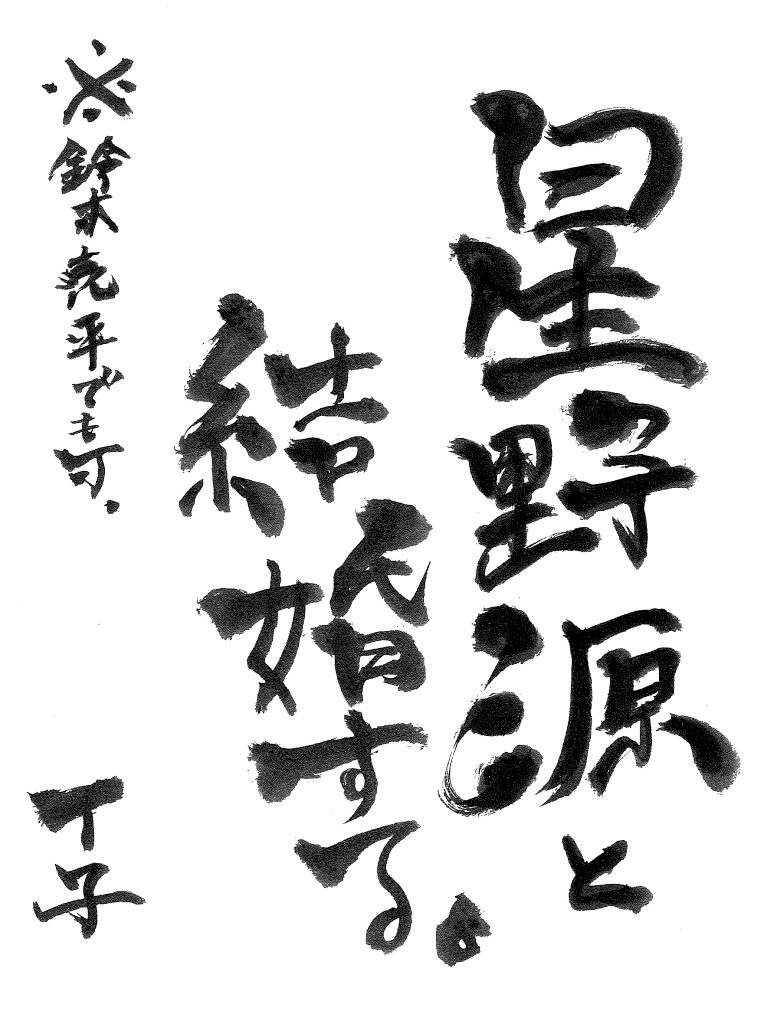 星野源と
結婚する。
※鈴木亮平でも可。
丁子